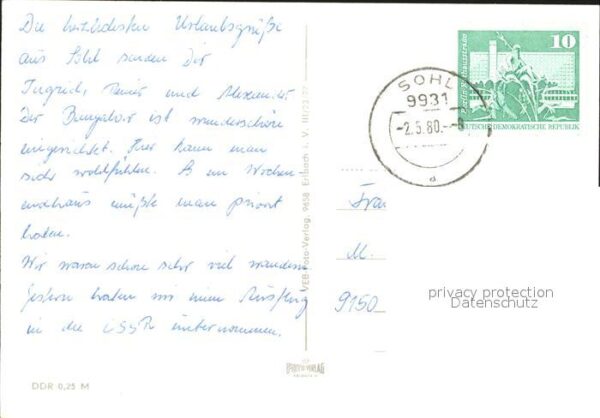 Die herzlichsten Urlaubsgrüße
aus Sohl senden Dir
Ingrid, Reiner und Alexander.
Der Bungalow ist wunderschön
eingerichtet. Hier kann man
sich wohlfühlen. So ein Wochen-
endhaus müßte man privat
haben.
Wir waren schon sehr viel wandern.
Gestern haben wir einen Ausflug
in die ČSSR unternommen.
DDR 0,25 M
VEB Foto-Verlag, 9658 Erlbach i. V. III/23/27
SOHL
9931
-2.5.80.--
a
10
Berlin, Rathausstraße
DEUTSCHE DEMOKRATISCHE REPUBLIK
Frau
M.
9150
privacy protection
Datenschutz